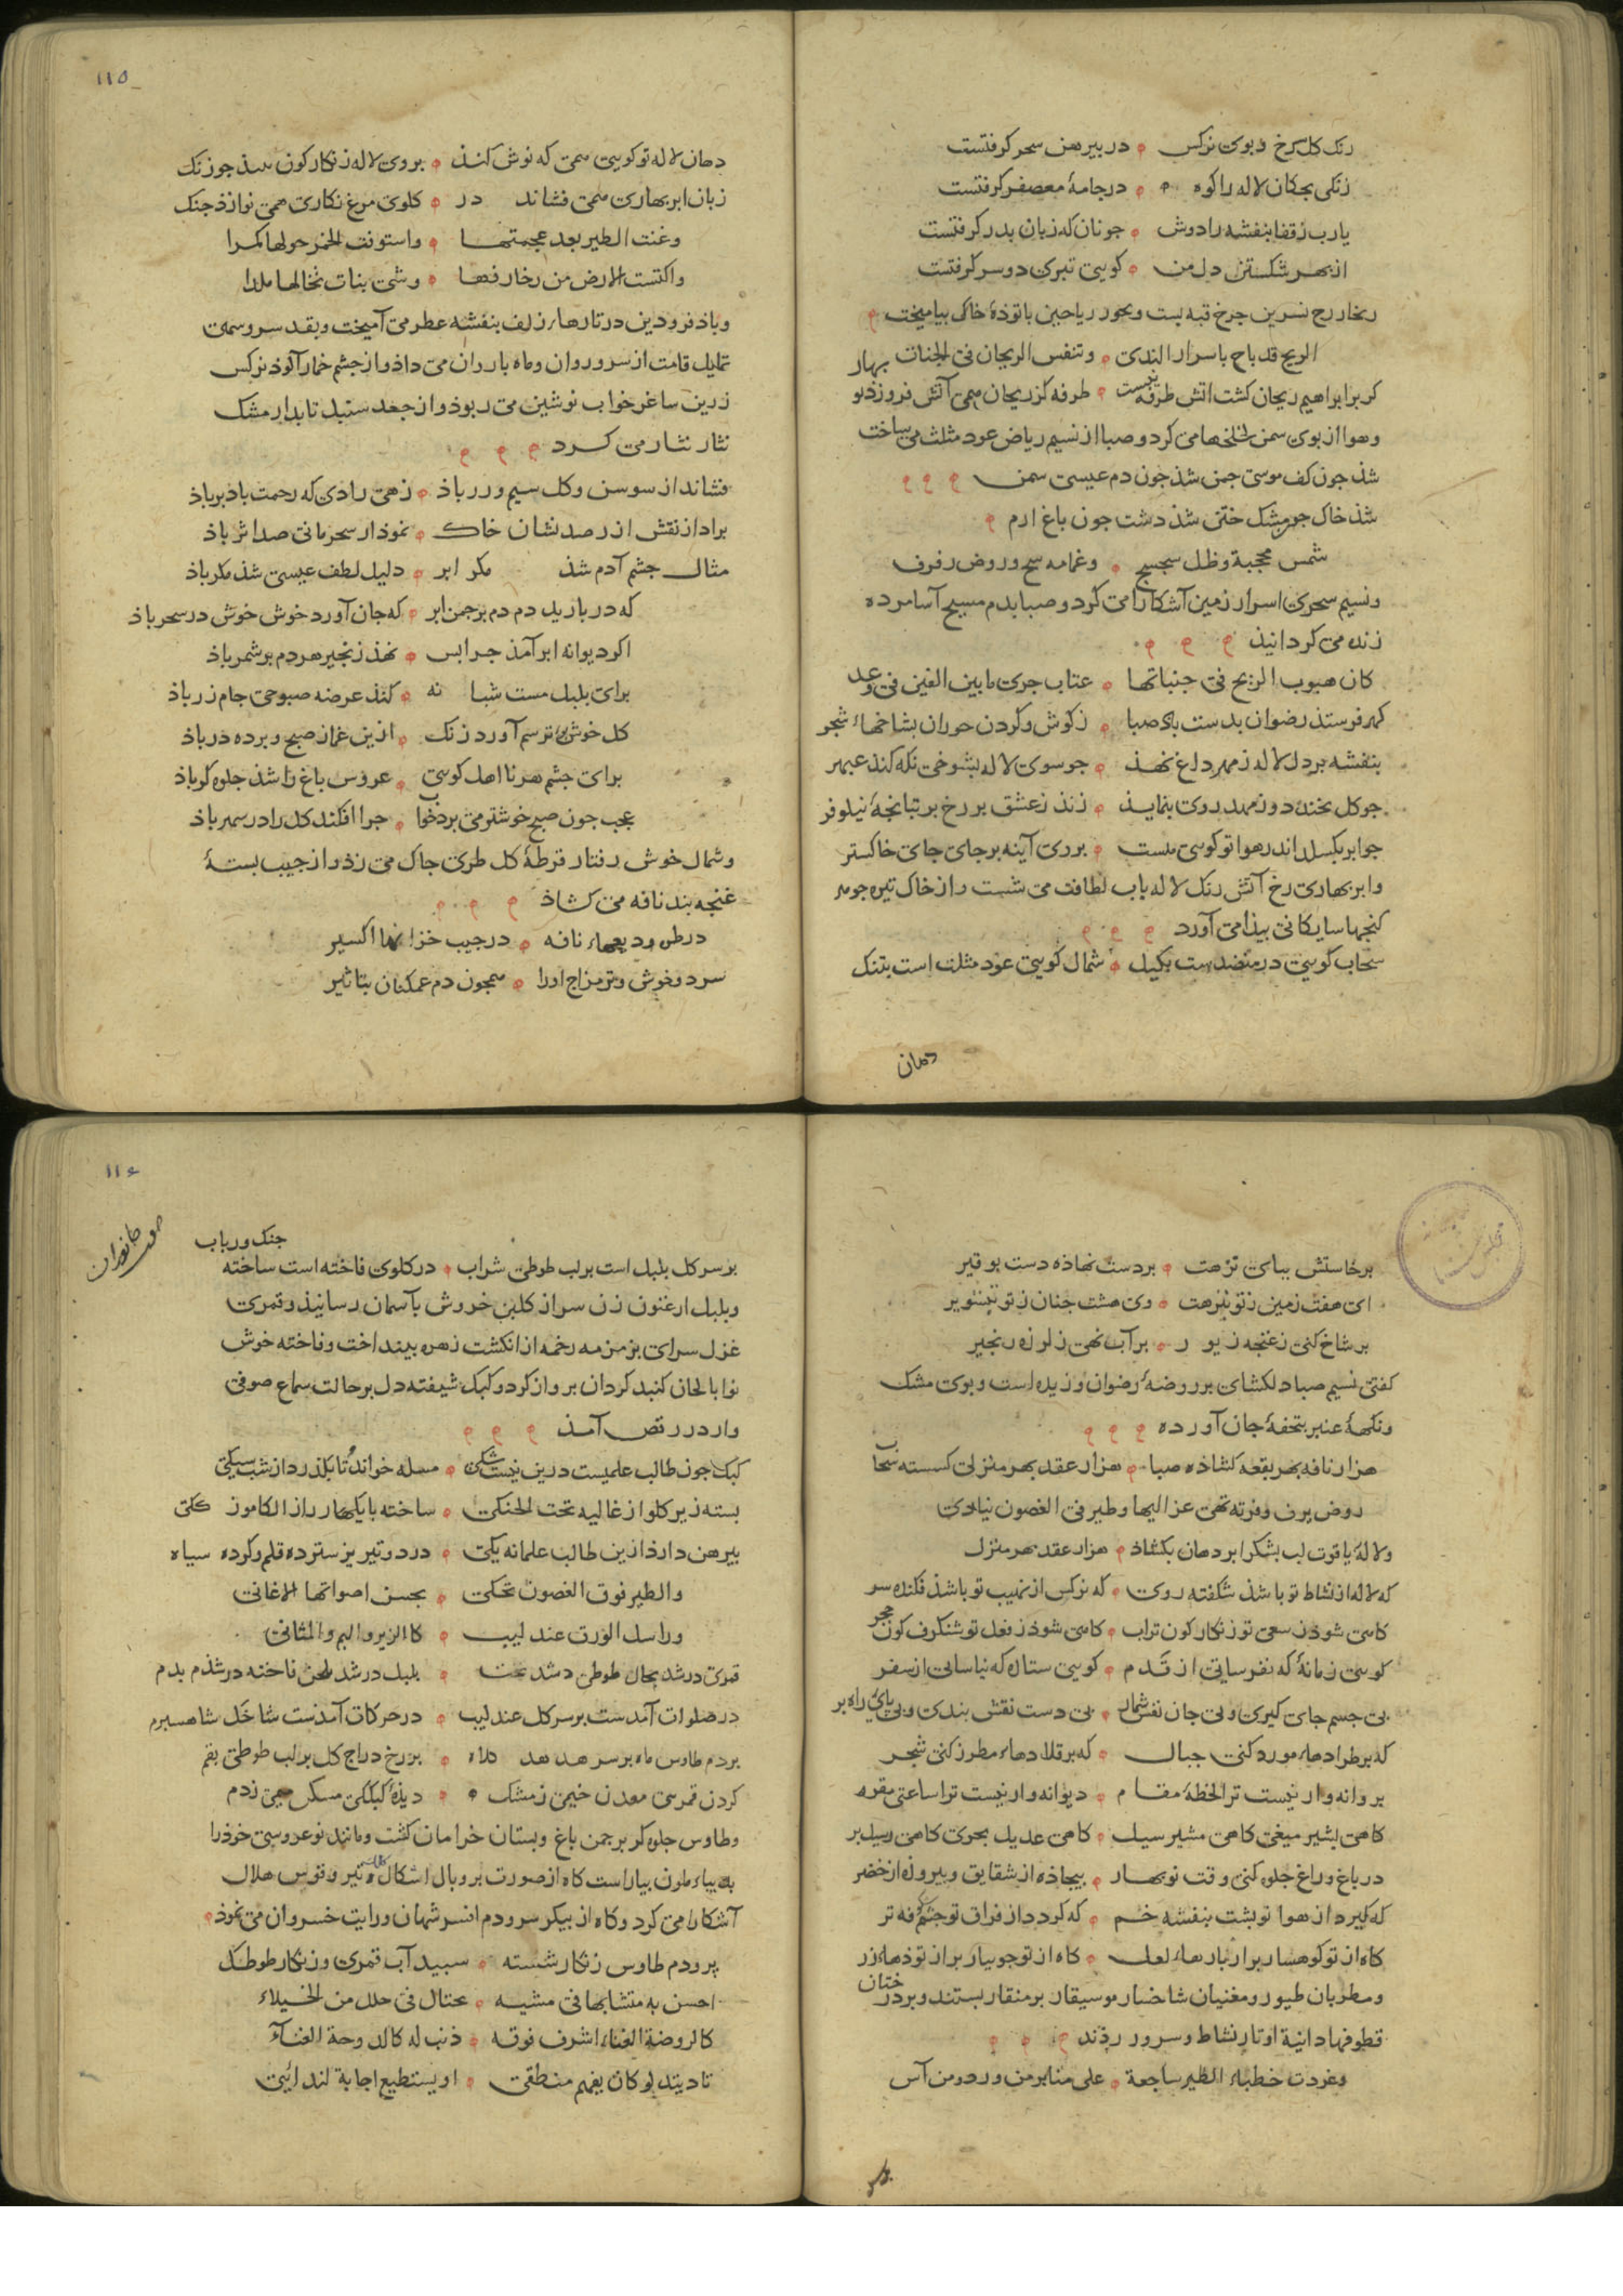 رنک کل رخ و بوی نرکس ٥ در پیرهن سحر کرفتست
زنکی بچکان لاله را کوه ٥ در جامهٔ معصفر کرفتست
یارب ز قفا بنفشه را دوش ٥ جونان که زبان بدر کرفتست
از بهر شکستن دل من ٥ کویی تبری دو سر کرفتست
بخار رخ نسرین جرخ قبه بست و بخور ریاحین با تودهٔ خاکی بیامیخت
الریح قد باح باسرار الندی ٥ وتنفس الریحان فی الجنات بهار
کر بر ابراهیم ریحان کشت اتش طرفه نیست ٥ طرفه کز ریحان همی آتش فروزد
وهوا از بوی سمن لخلخها می کرد و صبا از نسیم ریاض عود مثلث می ساخت
شذ جون کف موسی جمن شذ جون دم عیسی سمن
شذ خاک جو مشک ختن شذ دشت جون باغ ارم
شمس محجبة وظل سجسج ٥ وغمامه سح وروض رفرف
ونسیم سحری اسرار زمین آشکارا می کرد و صبا بدم مسیح آسا مرده
زنده می کردانیذ
کان هبوب الریح فی جنباتها ٥ عتاب جری ما بین الغین فی وعد
کهر فرستذ رضوان بدست باد صبا ٥ ز کوش و کردن حوران بشاخهاء شجر
بنفشه بر دل لاله ز مهر داغ نهذ ٥ جو سوی لاله بشوخی نکه کند عبهر
جو کل بخنده دو زمهد روی بنمایذ ٥ زند ز عشق بر رخ بر تبانجه نیلوفر
جو ابر بکسلد اندر هوا تو کویی هست ٥ بروی آینه بر جای جای خاکستر
وابر بهاری رخ آتش رنک لاله باب لطافت می شست و از خاک تیره جوهر
کنجها سایکانی بیذا می آورد
سحاب کویی در منضدست بکیل ٥ شمال کویی عود مثلث است بتنک
دهان
١١٥
دهان لاله تو کویی همی که نوش کنذ ٥ بروی لاله زنکارکون شذ جو زنک
زبان ابر بهاری همی فشاند در ٥ کلوی مرغ نکاری همی نوازذ جنک
وغنت الطیر بعد عجمتها ٥ واستوفت الخمر حولها کمرا
واکتست الارض من زخارفها ٥ وشی بنات تخالها حللا
وباذ فرودین در تارهاء زلف بنفشه عطر می آمیخت و بقد سرو سهی
تمایل قامت از سرو روان و ماه باروان می داذ و از جشم خمارآلوذ نرکس
زرین ساغر خواب نوشین می ربوذ و از جعد سنبل تابدار مشک
نثار نثار می کرد
فشاند از سوسن و کل سیم و زر باذ ٥ زهی رادی که رحمت باد بر باذ
براد از نقش ازر صد نشان خاک ٥ نموذار سحر مانی صد اثر باذ
مثال جشم آدم شذ مکر ابر ٥ دلیل لطف عیسی شذ مکر باذ
که در بارید دم دم بر جمن ابر ٥ که جان آورد خوش خوش در سحر باذ
اکر دیوانه ابر آمذ جرا بس ٥ نهذ زنجیر هر دم بر شمر باذ
برای بلبل مست شبانه ٥ کنذ عرضه صبوحی جام زر باذ
کل خوش بوی ترسم آورد زنک ٥ ازین غماز صبح و برده در باذ
برای جشم هر نا اهل کویی ٥ عروس باغ را شذ جلوه کر باذ
عجب جون صبح خوشتر می برد خواب ٥ جرا افکند کل را در سهر باذ
وشمال خوش رفتار قرطهٔ کل طری جاک می زذ و از جیب بستهٔ
غنجه بند نافه می کشاذ
در طی ودیعهاء نافه ٥ در جیب خزانها اکسیر
سرد و خوش و تر مزاج اورا ٥ همجون دم عمکنان بتاثیر
برخاستش ببای نزهت ٥ بردست نهاذه دست بوقیر
ای هفت زمین ز تو بنزهت ٥ وی هشت جنان ز تو بتنویر
بر شاخ کنی ز غنجه زیور ٥ بر آب نهی ز لرزه زنجیر
کفتی نسیم صبا دلکشای بر روضهٔ رضوان وزیده است و بوی مشک
ونکهة عنبر بتحفهٔ جان آورده
هزار نافه بهر بقعه کشاذه صبا ٥ هزار عقد بهر منزلی کسسته سحاب
ولالهٔ یاقوت لب بشکر ابر دهان بکشاذ ٥ هزار عقد بهر منزل
که لاله از نشاط تو باشذ شکفته روی ٥ که نرکس از نهیب تو باشذ فکنده سر
کاهی شوذ ز سعی تو زنکارکون تراب ٥ کاهی شوذ ز فعل تو شنکرف کون حجر
کویی زمانهٔ که نفرسایی از قدم ٥ کویی ستاره که نیاسایی از سفر
بی جسم جای کیری و بی جان نفس شمار ٥ بی دست نقش بندی و بی پای راه بر
که بر طرادهاء مورد کنی جبال ٥ که بر قلادهاء مطرز کنی شجر
بروانه وار نیست ترا لحظهٔ مقام ٥ دیوانه وار نیست ترا ساعتی مقر
کاهی بشیر میغی کاهی مشیر سیل ٥ کاهی عدیل بحری کاهی رسیل بر
در باغ و راغ جلوه کنی وقت نوبهار ٥ بیجاذه از شقایق و بیروزه از خضر
که کیرد از هوا تو بشت بنفشه خم ٥ که کردد از فراق تو جشم شکوفه تر
کاه از تو کوهسار بر از بارهاء لعل ٥ کاه از تو جویبار بر از توذهاء زر
ومطربان طیور و مغنیان شاخسار موسیقار بر منقار بستند و بر درختان
قطوفها دانیة اوتار نشاط و سرور رذند
وغردت خطباء الطیر ساجعة ٥ علی منابر من ورد ومن آس
بر سر
١١٦
صوت جانوران
جنک و رباب
بر سر کل بلبل است بر لب طوطی شراب ٥ در کلوی فاخته است ساخته
وبلبل ارغنون زن سر از کلبن خروش بآسمان رسانیذ و قمری
غزل سرای بزمزمه زخمه از انکشت زهره بینداخت و فاخته خوش
نوا بالحان کنبد کردان برواز کرد و کبک شیفته دل بر حالت سماع صوفی
وار در رقص آمذ
کبک جون طالب علمیست درین نیست شکی ٥ مسله خواند تا بکذرد از شب سیکی
بسته زیر کلو از غالیه تحت الحنکی ٥ ساخته بایکها را ز الکا موزککی
بیرهن دارذ ازین طالب علمانه یکی ٥ در دو تیریز سترده قلم و کرده سیاه
والطیر فوق الغصون تحکی ٥ بحسن اصواتها الاغانی
وراسل الورق عندلیب ٥ کالزیر والبم والمثانی
در صلوات آمدست بر سر کل عندلیب ٥ در حرکات آمذست شاخک شاهسبرم
وطاوس جلوه کر بر جمن باغ و بستان خرامان کشت و مانند نوعروسی خوذ را
به بیاء ملون بیاراست کاه از صورت بر و بال اشکال تیر و قوس هلال
آشکارا می کرد و کاه از بیکر سر و دم افسر شهان و رایت خسروان می نموذ
پر و دم طاوس زنکار شسته ٥ سبید آب قمری و زنکار طوطک
احسن به متشابها فی مشیه ٥ یختال فی حلل من الخیلاء
کالروضة الغناء اشرف فوقه ٥ ذنب له کالدوحة الغنآء
نادیته لو کان یفهم منطقی ٥ او یستطیع اجابة لندائی